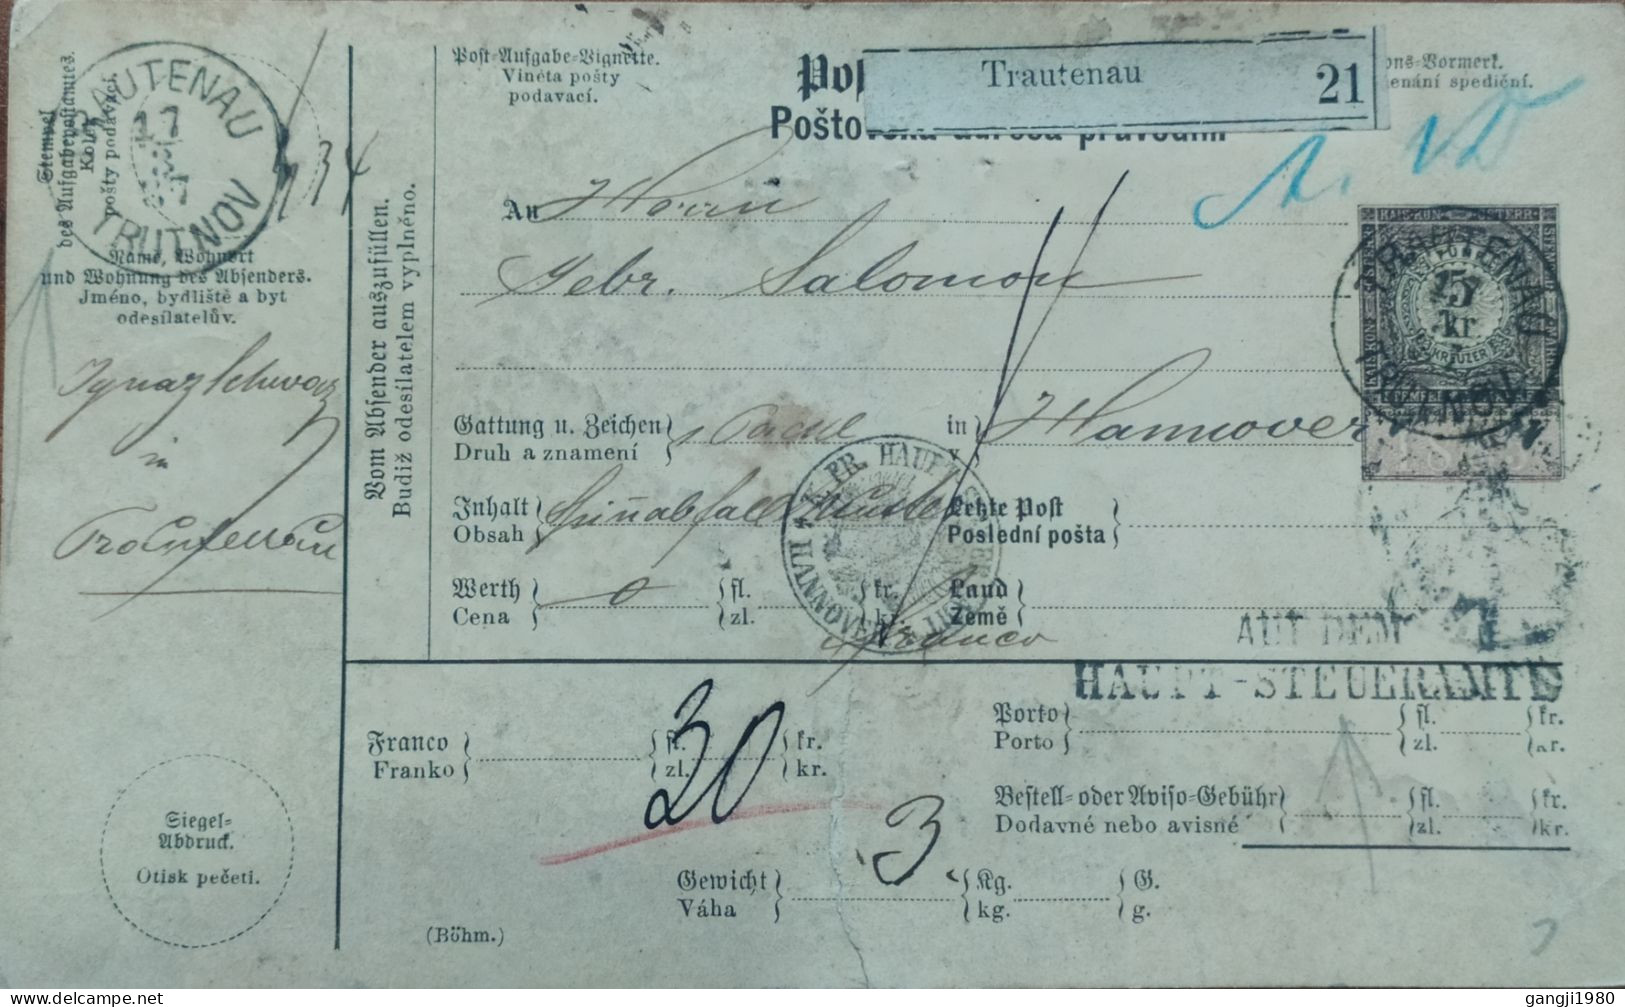 Stempel
des Aufgabepostamtes.
Kolek
pošty podávací.
TRAUTENAU
17
TRUTNOV
434
Name, Wohnort
und Wohnung des Absenders.
Jméno, bydliště a byt
odesílatelův.
Ignaz Schwarz
in
Trautenau
Siegel-
Abdruck.
Otisk pečeti.
Vom Absender auszufüllen.
Budiž odesílatelem vyplněno.
Post-Aufgabe-Vignette.
Viněta pošty
podavací.
Trautenau 21
Poštovská adresa průvodní
ons-Vormerk.
enání spediční.
An Herrn
Gebr. Salomon
Gattung u. Zeichen
Druh a znamení
in Hannover
v
Inhalt
Obsah
Letzte Post
Poslední pošta
Werth 0 fl. kr.
Cena zl. kr.
Land
Země
franco
KAIS. KÖN. ÖSTERR.
15
kr
KREUZER
TRAUTENAU
TRUTNOV
PR. HAUPT
HANNOVER
AUF DEM
HAUPT-STEUERAMTE
Franco fl. kr.
Franko zl. kr.
30
Porto fl. kr.
Porto zl. kr.
Bestell- oder Aviso-Gebühr fl. kr.
Dodavné nebo avisné zl. kr.
3
Gewicht Kg. G.
Váha kg. g.
(Böhm.)
gangji1980